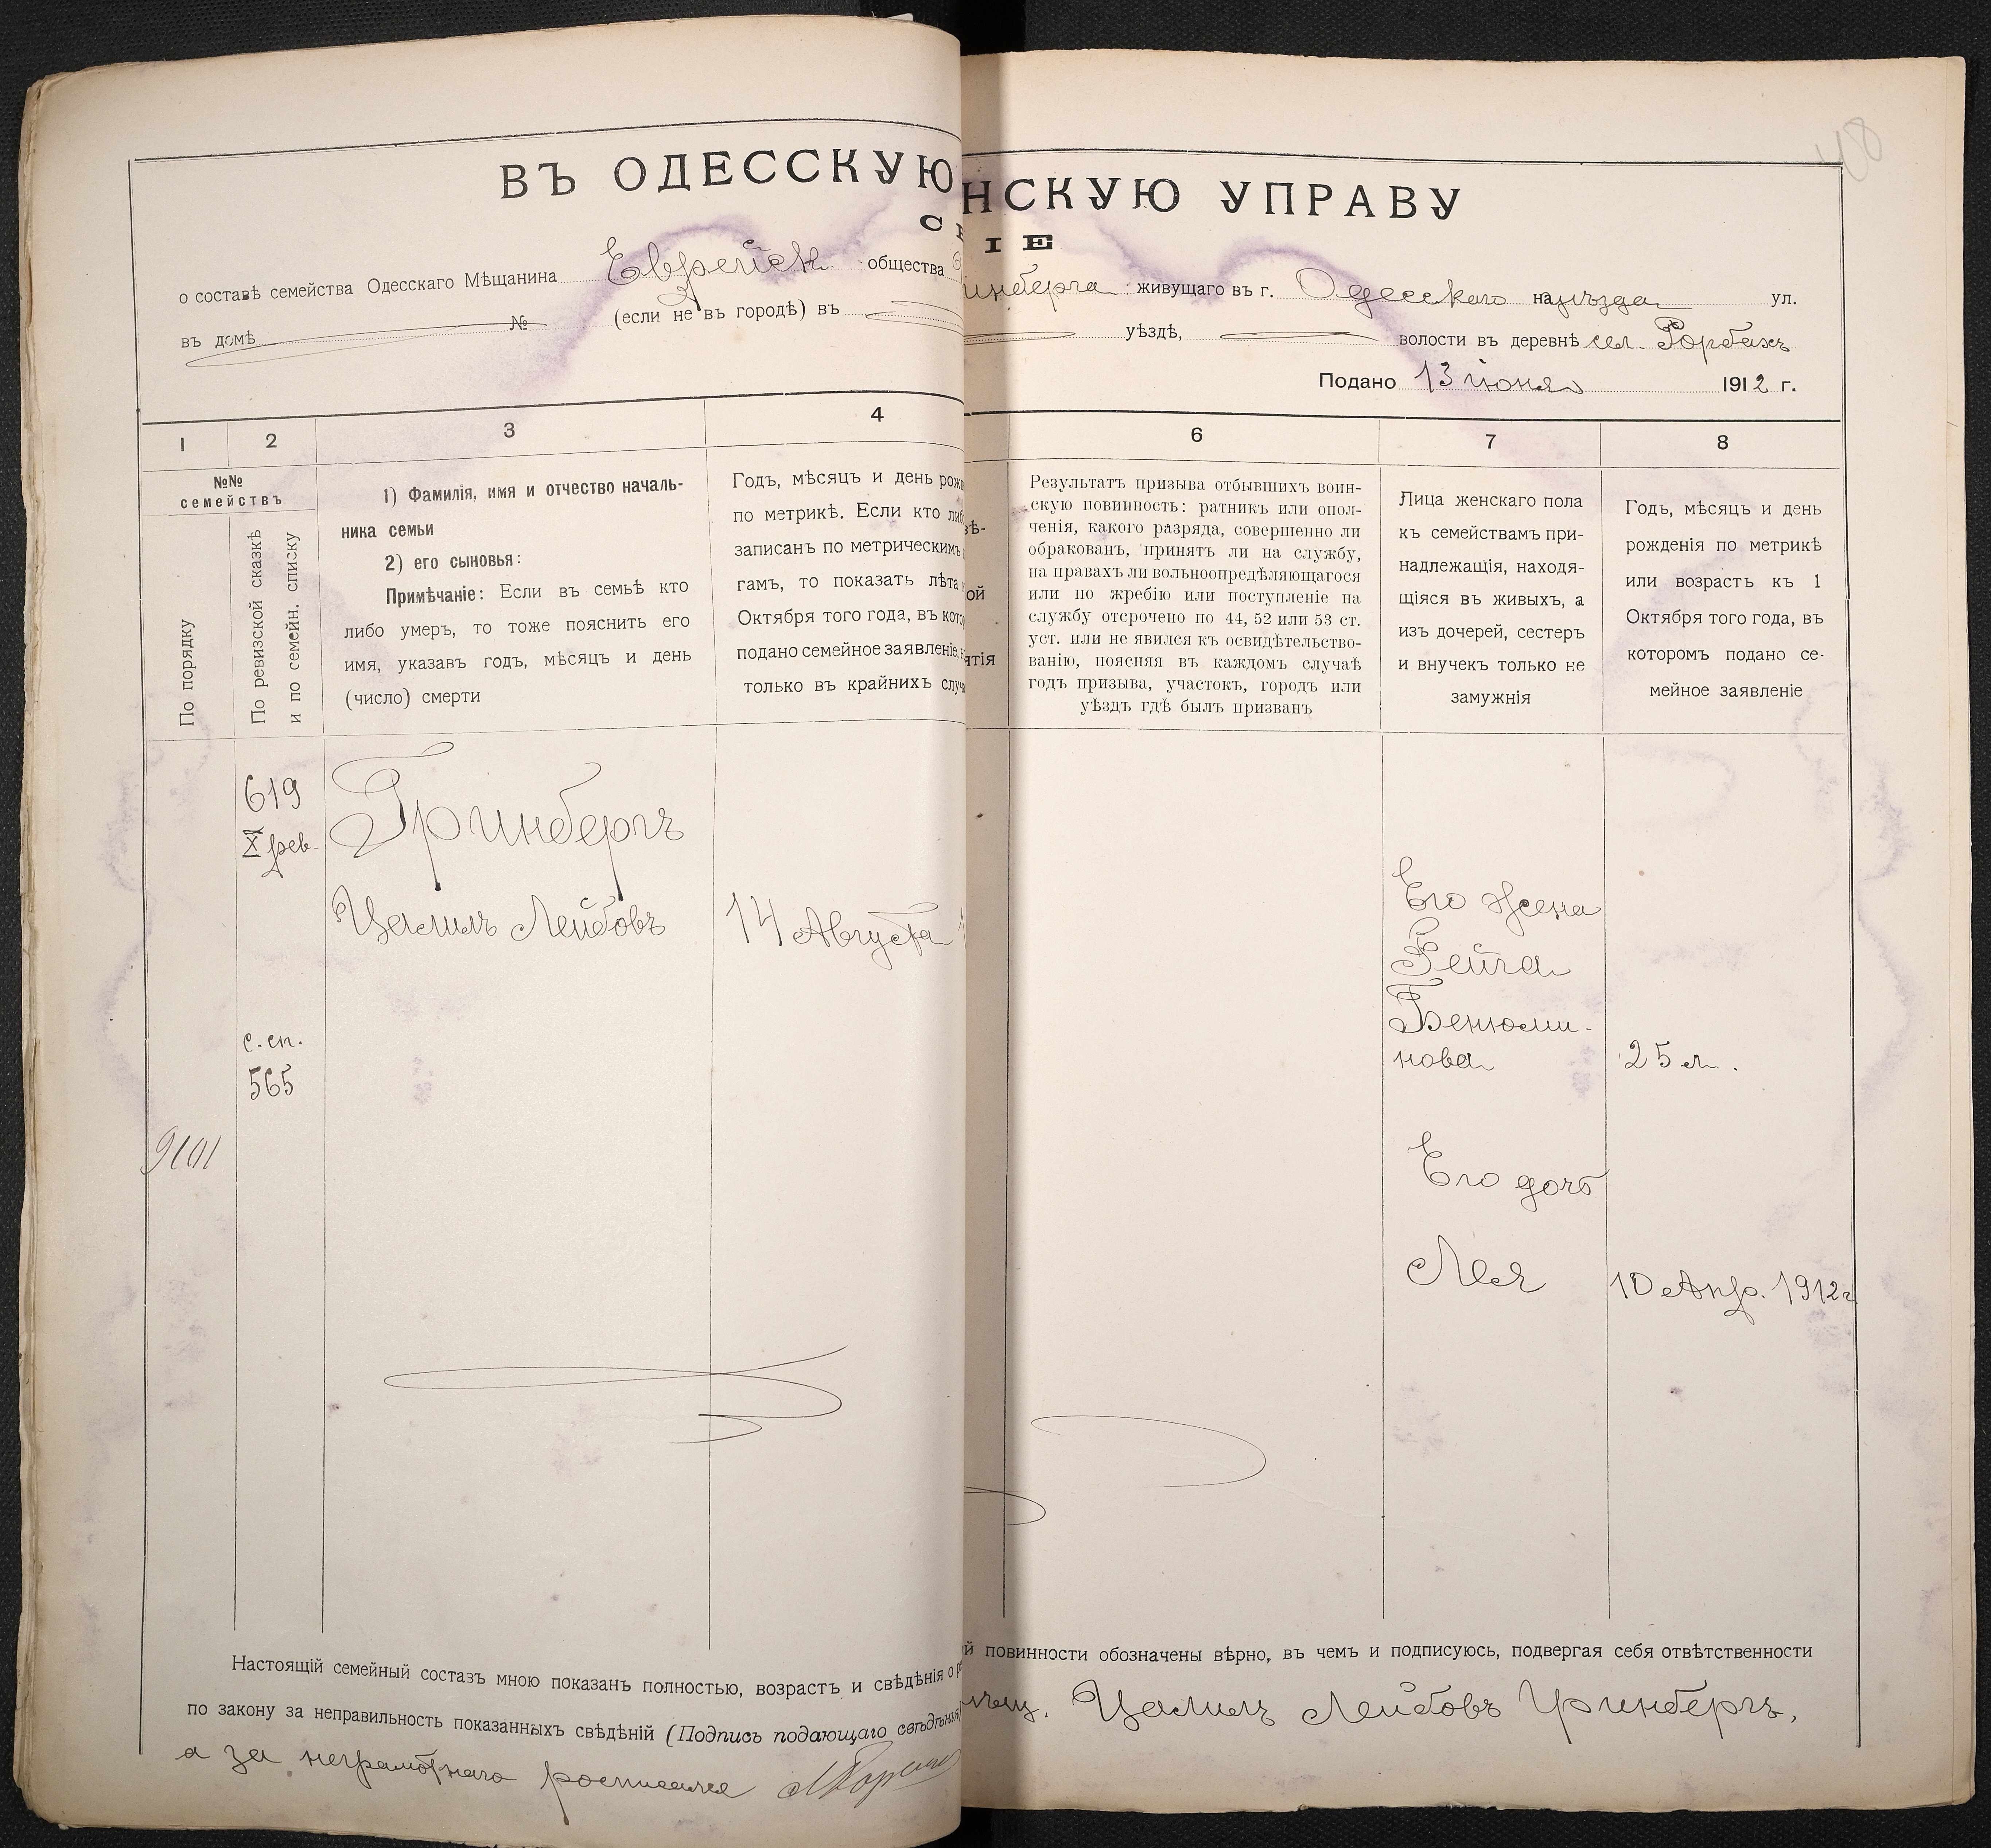 48
ВЪ ОДЕССКУЮ НСКУЮ УПРАВУ
ІЕ
о составѣ семейства Одесскаго Мѣщанина Еврейск. общества инберга живущаго въ г. Одесскаго на уѣзда ул.
въ домѣ № (если не въ городѣ) въ уѣздѣ, волости въ деревнѣ сел. Рорбахъ
Подано 13 іюня 1912 г.
1 2 3 4 6 7 8
№№
семействъ
По порядку
По ревизской сказкѣ
и по семейн. списку
1) Фамилія, имя и отчество началь-
ника семьи
2) его сыновья:
Примѣчаніе: Если въ семьѣ кто
либо умеръ, то тоже пояснить его
имя, указавъ годъ, мѣсяцъ и день
(число) смерти
Годъ, мѣсяцъ и день рож
по метрикѣ. Если кто либ
записанъ по метрическимъ
гамъ, то показать лѣта
Октября того года, въ кото
подано семейное заявленіе,
только въ крайнихъ случ
вѣ-
ой
ятія
Результатъ призыва отбывшихъ воин-
скую повинность: ратникъ или опол-
ченія, какого разряда, совершенно ли
обракованъ, принятъ ли на службу,
на правахъ ли вольноопредѣляющагося
или по жребію или поступленіе на
службу отсрочено по 44, 52 или 53 ст.
уст. или не явился къ освидѣтельство-
ванію, поясняя въ каждомъ случаѣ
годъ призыва, участокъ, городъ или
уѣздъ гдѣ былъ призванъ
Лица женскаго пола
къ семействамъ при-
надлежащія, находя-
щіяся въ живыхъ, а
изъ дочерей, сестеръ
и внучекъ только не
замужнія
Годъ, мѣсяцъ и день
рожденія по метрикѣ
или возрастъ къ 1
Октября того года, въ
которомъ подано се-
мейное заявленіе
619
X рев.
Гринбергъ
Цалилъ Лейбовъ
14 Августа 1
с. сп.
565
9101
Его жена
Рейга
Бенюми-
нова
25 л.
Его дочь
Лея
10 Апр. 1912 г
Настоящій семейный составъ мною показанъ полностью, возрастъ и свѣдѣнія о й повинности обозначены вѣрно, въ чемъ и подписуюсь, подвергая себя отвѣтственности
по закону за неправильность показанныхъ свѣдѣній (Подпись подающаго свѣдѣнія) мѣщ. Цалилъ Лейбовъ Гринбергъ,
а за неграмотнаго росписался